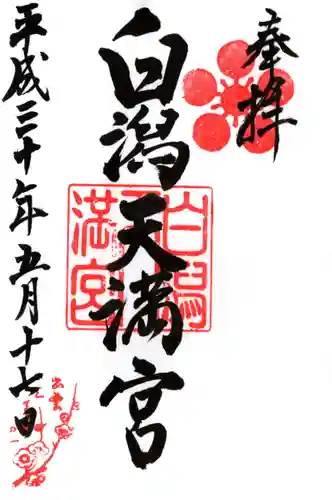 奉拝
白潟天満宮
白潟天満宮
平成三十年五月十七日
出雲